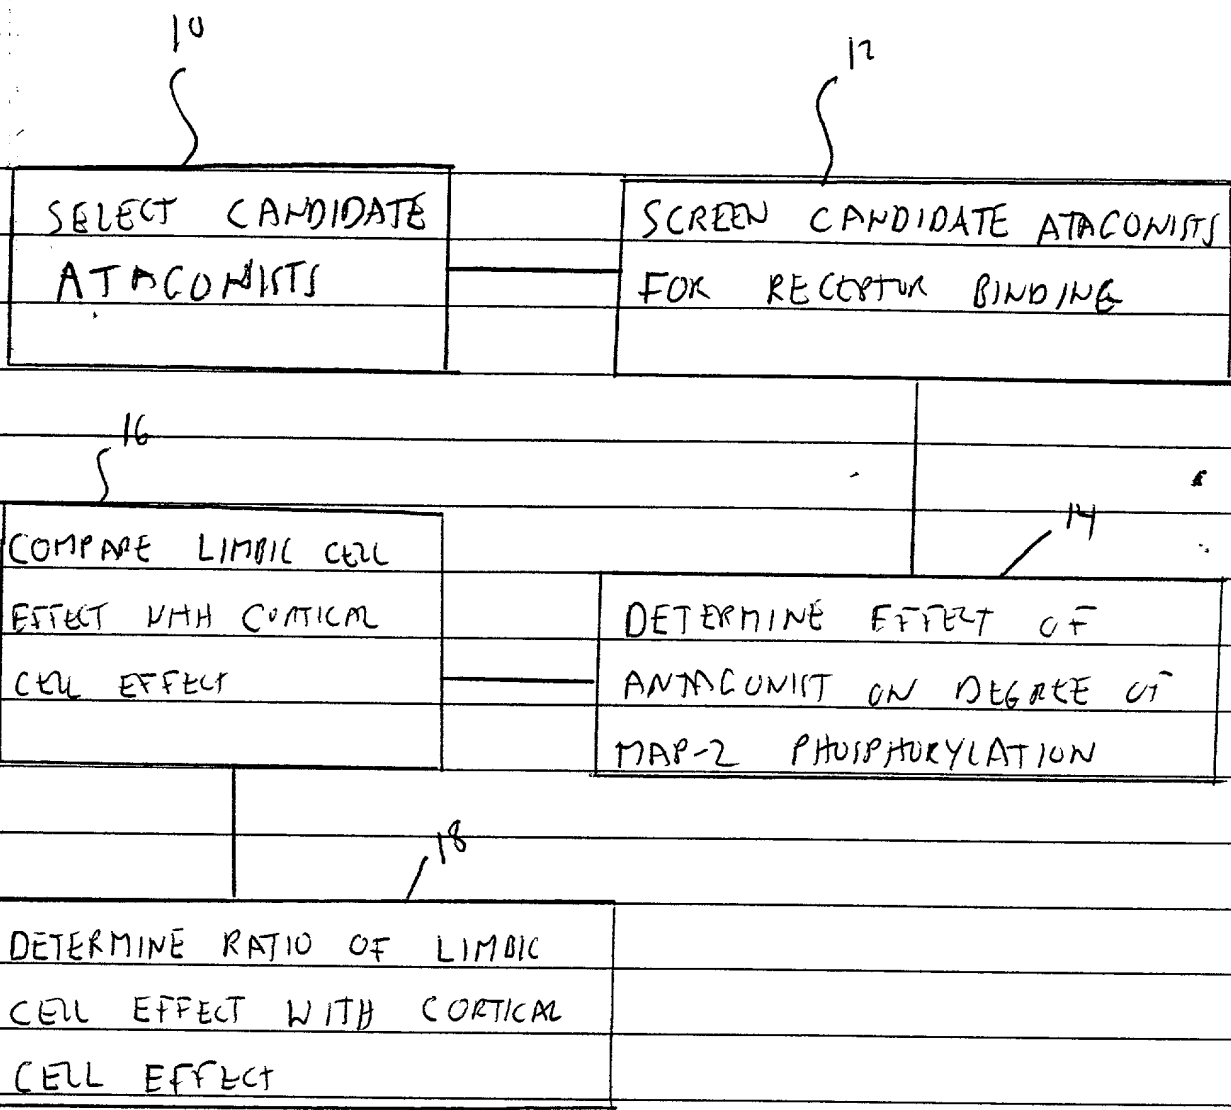 10
12
SELECT CANDIDATE
ATAGONISTS
SCREEN CANDIDATE ATAGONISTS
FOR RECEPTOR BINDING
16
COMPARE LIMBIC CELL
EFFECT WITH CORTICAL
CELL EFFECT
14
DETERMINE EFFECT OF
ANTAGONIST ON DEGREE OF
MAP-2 PHOSPHORYLATION
18
DETERMINE RATIO OF LIMBIC
CELL EFFECT WITH CORTICAL
CELL EFFECT